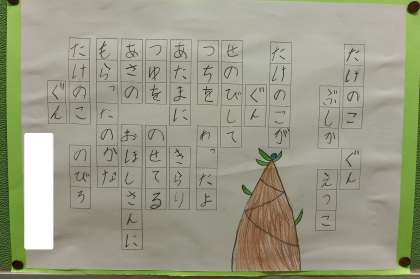 たけのこ ぐん
ぶしか えつこ
たけのこが
ぐん
せのびして
つちを わったよ
あたまに きらり
つゆを のせてる
あさの おほしさんに
もらったのかな
たけのこ のびろ
ぐん